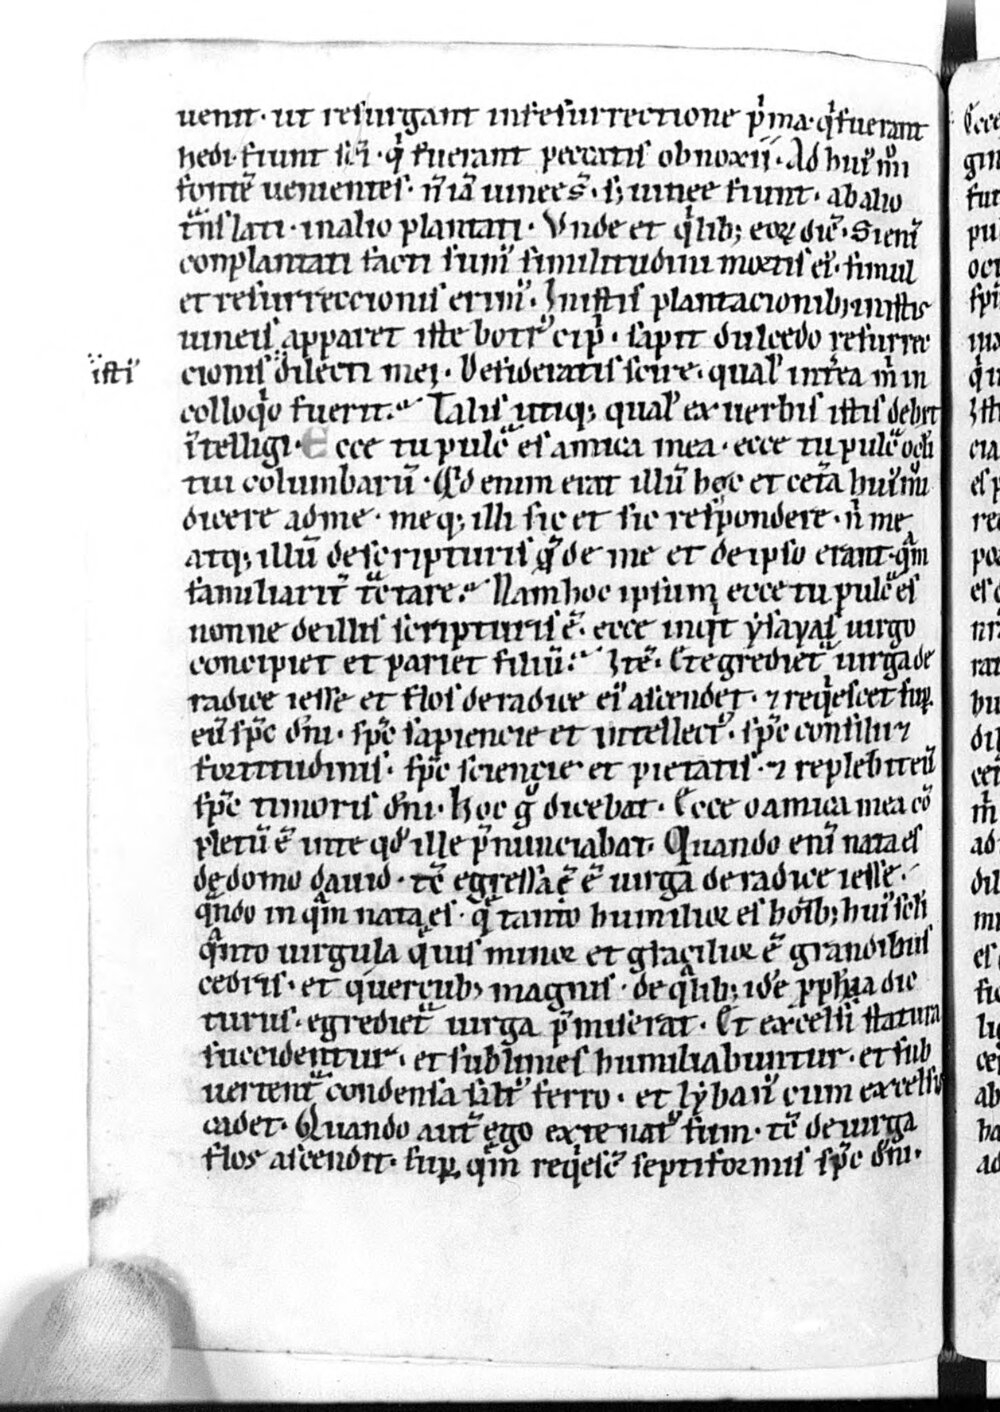 uenit · ut resurgant in resurrectione p̍ma · q̍ fuerant
hedi · fiunt sc̄i · q̍ fuerant peccatis obnoxii · Ad hui᷒mi
fontē uenientes · n̄ iā uineę s̄ · s; uineę fiunt · ab alio
t̄nslati · in alio plantati · Vnde et q̍lib; eoꝝ dic̄ · Si eni
conplantati facti sum᷒ similitudini mortis ei᷒ · simul
et resurreccionis erim᷒ · In istis plantacionib; in istis
uineis apparet iste botr᷒ cip̍ · sapit dulcedo resurrec
cionis dilecti mei · Desideratis scire · qual᷒ int̄ea m̍ in
isti᷒
colloq̍o fuerit · Talis utiq; qual᷒ ex uerbis istis debet
ītelligi · Ecce tu pulc̄ es amica mea · ecce tu pulc̄ oc̄li
tui columbarū · Qd enim erat illū hęc et cet̄a hui᷒mi
dicere ad me · meq; illi sic et sic respondere · n̄ me
atq; illū de scripturis q̄ de me et de ipso erant · q̄m
familiarit̄ t̄ctare · Nam hoc ipsum ecce tu pulc̄ es
nonne de illis scripturis ē · ecce inqt ysayas uirgo
concipiet et pariet filiū · Itē · Et egrediet᷒ uirga de
radice iesse et flos de radice ei᷒ ascendet · ⁊ req̍escet sup
eū sp̄c dn̄i · sp̄c sapiencie et intellect᷒ · sp̄c consilii ⁊
fortitudinis · sp̄c sciencie et pietatis · ⁊ replebit eū
sp̄c timoris dn̄i · Hoc g̊ dicebat · Ecce o amica mea cō
pletū ē in te qd̄ ille p̄nunciabat · Quando eni nata es
de domo dauid · tc̄ egressa ē uirga de radice iesse ·
q̄ndo in q̄m nata es · q̄ tanto humilior es hōib; hui᷒ sc̄li
q̄nto uirgula q̄uis minor et gracilior ē grandibus
cedris · et quercub; magnis · de q̍lib; idē ꝓph̄ia dic
turus · egrediet᷒ uirga p̄miserat · Et excelsi statura
succidentur · et sublimes humiliabuntur · et sub
uertent᷒ condensa salt᷒ ferro · et lyban᷒ cum excelsis
cadet · Quando aut̄ ego ex te nat᷒ sum · tc̄ de uirga
flos ascendit · sup q̄m req̍esc̄ septiformis sp̄c dn̄i ·